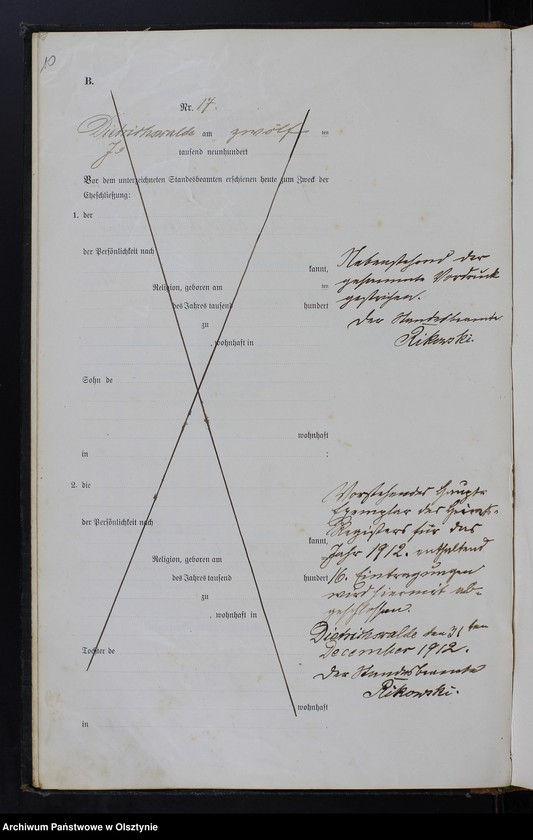 10
B.
Nr. 17.
Dietrichswalde am zwölf ten
tausend neunhundert
Vor dem unterzeichneten Standesbeamten erschienen heute zum Zweck der
Eheschließung:
1. der
der Persönlichkeit nach
kannt,
Religion, geboren am
des Jahres tausend
hundert
zu
, wohnhaft in
Sohn de
wohnhaft
in
;
2. die
der Persönlichkeit nach
kannt,
Religion, geboren am
des Jahres tausend
hundert
zu
, wohnhaft in
Tochter de
wohnhaft
in
Nebenstehend der
gesammte Vordruck
gestrichen.
Der Standesbeamte
Rikowski.
Vorstehendes Haupt-
Exemplar des Heirats-
Registers für das
Jahr 1912. enthaltend
16. Eintragungen
wird hiermit ab-
geschlossen.
Dietrichswalde den 31 ten
December 1912.
Der Standesbeamte
Rikowski.
Archiwum Państwowe w Olsztynie